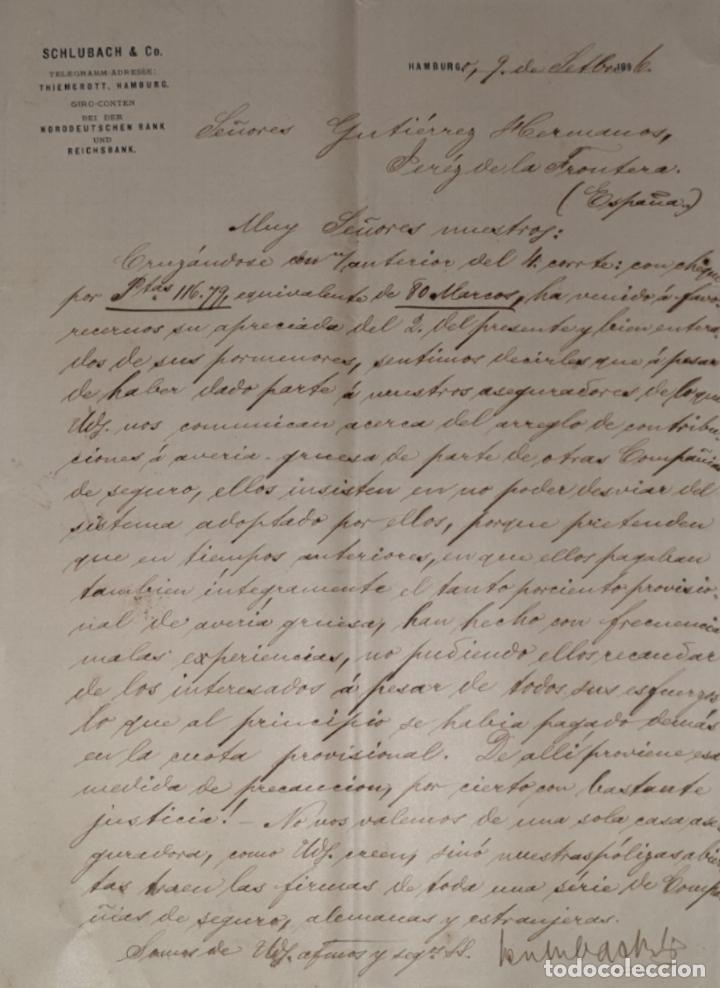 SCHLUBACH & Co.
TELEGRAMM-ADRESSE:
THIEMEROTT, HAMBURG.
GIRO-CONTEN
BEI DER
NORDDEUTSCHEN BANK
UND
REICHSBANK.
HAMBURGo, 9. de Setbre 1896.
Señores Gutiérrez Hermanos,
Jeréz de la Frontera.
(España.)
Muy Señores nuestros:
Cruzándose con n/ anterior del 4. corrte: con cheque
por Ptas 116.79, equivalente de 80 Marcos, ha venido á favo-
recernos su apreciada del 2. del presente y bien entera-
dos de sus pormenores, sentimos decirles que á pesar
de haber dado parte á nuestros aseguradores de lo que
Uds. nos comunican acerca del arreglo de contribu-
ciones á averia gruesa de parte de otras Compañias
de seguro, ellos insisten en no poder desviar del
sistema adoptado por ellos, porque pretenden
que en tiempos anteriores, en que ellos pagaban
tambien íntegramente el tanto porciento provisio-
nal de avería gruesa, han hecho con frecuencia
malas experiencias, no pudiendo ellos recaudar
de los interesados á pesar de todos sus esfuerzos
lo que al principio se habia pagado demás
en la cuota provisional. De allí proviene esa
medida de precaucion, por cierto con bastante
justicia! - No nos valemos de una sola casa ase-
guradora, como Uds. creen, sinó nuestras pólizas abier-
tas traen las firmas de toda una série de Compa-
ñias de seguro, alemanas y estranjeras.
Somos de Uds. afmos y segos SS.
todocoleccion
todocoleccion.net